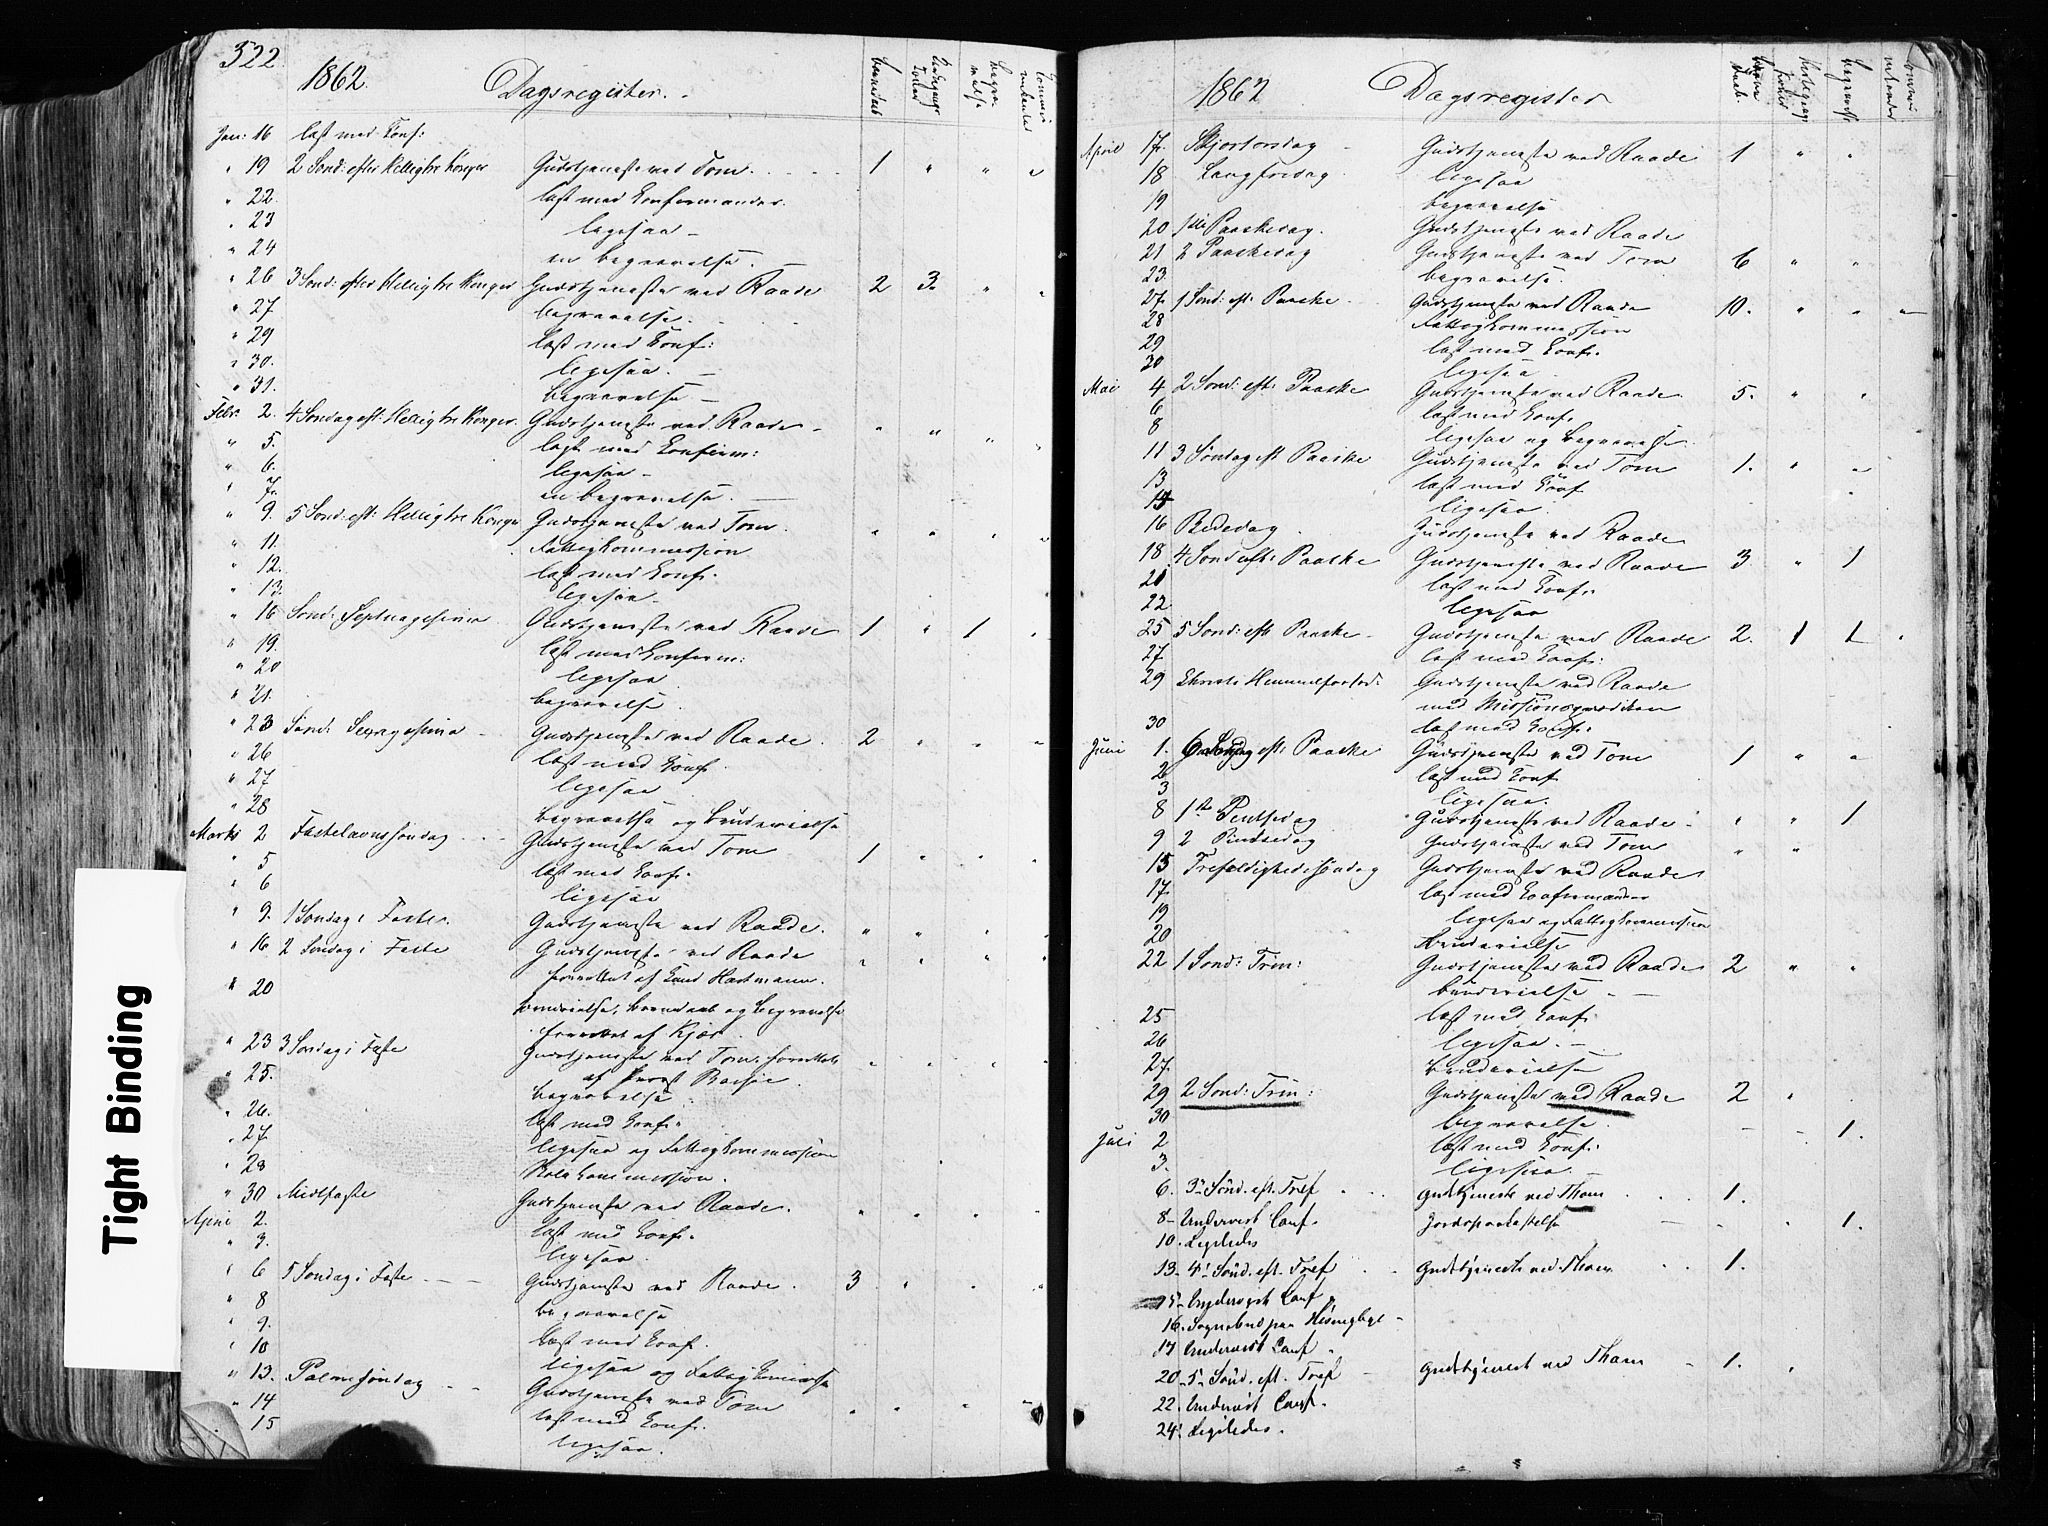 322
1862. Dagsregister.
Jan: 16 læst med Conf:
" 19 2 Sond: efter Helligtre Konger Gudstjeneste ved Tom. 1 " " "
" 22. læst med Confirmander.
" 23 ligesaa
" 24 en begravelse.
" 26 3 Sond: efter Helligtre Konger Gudstjeneste ved Raade 2 3. " "
" 27. begravelse.
" 29 læst med Conf:
" 30. ligesaa.
" 31. begravelse
Febr. 2. 4 Søndag eft: Helligtre Konger. Gudstjeneste ved Raade " " " "
" 5. læst med Confirm:
" 6. ligesaa
" 7. en begravelse.
" 9. 5 Sond: eft: Helligtre Konger Gudstjeneste ved Tom. " " " "
" 11. Fattigkommission
" 12. læst med Conf.
" 13. ligesaa
" 16 Sond: Septuagesima Gudstjeneste ved Raade 1 " 1 "
" 19. læst med Confirm:
" 20 ligesaa
" 21. begravelse
" 23 Sond: Sexagesima Gudstjeneste ved Raade. 2 " " "
" 26 læst med Conf.
" 27 ligesaa
" 28 begravelse og Brudevielse
Marts 2 Fastelavnssøndag Gudstjeneste ved Tom 1 " " "
" 5 læst med Conf.
" 6 ligesaa
" 9. 1 Søndag i Faste. Gudstjeneste ved Raade. " " " "
" 16 2 Søndag i Faste Gudstjeneste ved Raade " " " "
forrettet af Cand Hartmann.
" 20 brudevielse, barnedaab og begravelse
forrettet af Kjær
" 23 3 Søndag i Faste Gudstjeneste ved Tom, forrettet " " " "
af Provst
" 25. begravelse
" 26. læst med Conf.
" 27. ligesaa og Fattigkommission
" 28 Skolekommission.
" 30 Midtfaste Gudstjeneste ved Raade. " " " "
April 2. læst med Conf.
" 3. ligesaa
" 6 5 Søndag i Faste Gudstjeneste ved Raade. 3 " " "
" 8 begravelse
" 9. læst med Conf.
" 10 ligesaa og
" 13. Palmesøndag Gudstjeneste ved Tom " " " "
" 14 læst med Conf.
15 ligesaa.
1862 Dagsregister
April 17. Skjærtorsdag Gudstjeneste ved Raade 1 " "
18 Langfredag. ligesaa
19 begravelse
20 1ste Paaskedag. Gudstjeneste ved Raade
21 2 Paaskedag Gudstjeneste ved Tom 6 " "
23. begravelse.
27. 1 Sond: eft. Paaske Gudstjeneste ved Raade 10. " " "
28 Fattigkommission
29 læst med Conf.
30 ligesaa
Mai 4 2 Sond: eft: Paaske Gudstjeneste ved Raade. 5. " "
6 læst med Conf.
8 ligesaa og begravelse
11 3 Søndag eft Paaske Gudstjeneste ved Tom 1. " "
13 læst med Conf
15 ligesaa.
16 Bededag Gudstjeneste ved Raade
18 4 Sond eft: Paaske Gudstjeneste ved Raade 3. " 1
21 læst med Conf.
22 ligesaa
25 5 Sond: eft. Paaske Gudstjeneste ved Raade 2. 1 1
27. læst med Conf:
29 Christi Himmelfartsd. Gudstjeneste ved Raade
med Missionsprædiken
30 læst med Conf.
Juni 1. 6 Søndag eft: Paaske Gudstjeneste ved Tom 1 " "
2 læst med Conf
3 ligesaa.
8 1ste Pintsedag Gudstjeneste ved Raade " " 1
9 2 Pintsedag Gudstjeneste ved Tom " "
15 Trefoldighedssøndag Gudstjeneste ved Raade
17. læst med Confirmander
19 ligesaa og Fattigkommission
20 brudevielse
22 1 Sond: Trin: Gudstjeneste ved Raade 2 " "
brudevielse
25 læst med Conf.
26 ligesaa.
27. brudevielse
29 2 Sond: Trin: Gudstjeneste ved Raade 2 "
30 begravelse. 1.
Juli 2 læst med Conf.
3. ligesaa.
6. 3' Sønd. eft. Tref Gudstjeneste ved Thom 1.
8 Underviist Conf. Jordspaakastelse 1.
10. Ligeledes
13. 4' Sønd. eft. Tref Gudstjeneste ved Thom 1.
15. Underviist Conf.
16. Sognebud paa
17 Underviist Conf.
20 5' Sønd. eft. Tref Gudstjenest ved Thom 1.
22. Underviist Conf.
24. Ligeledes.
Tight Binding